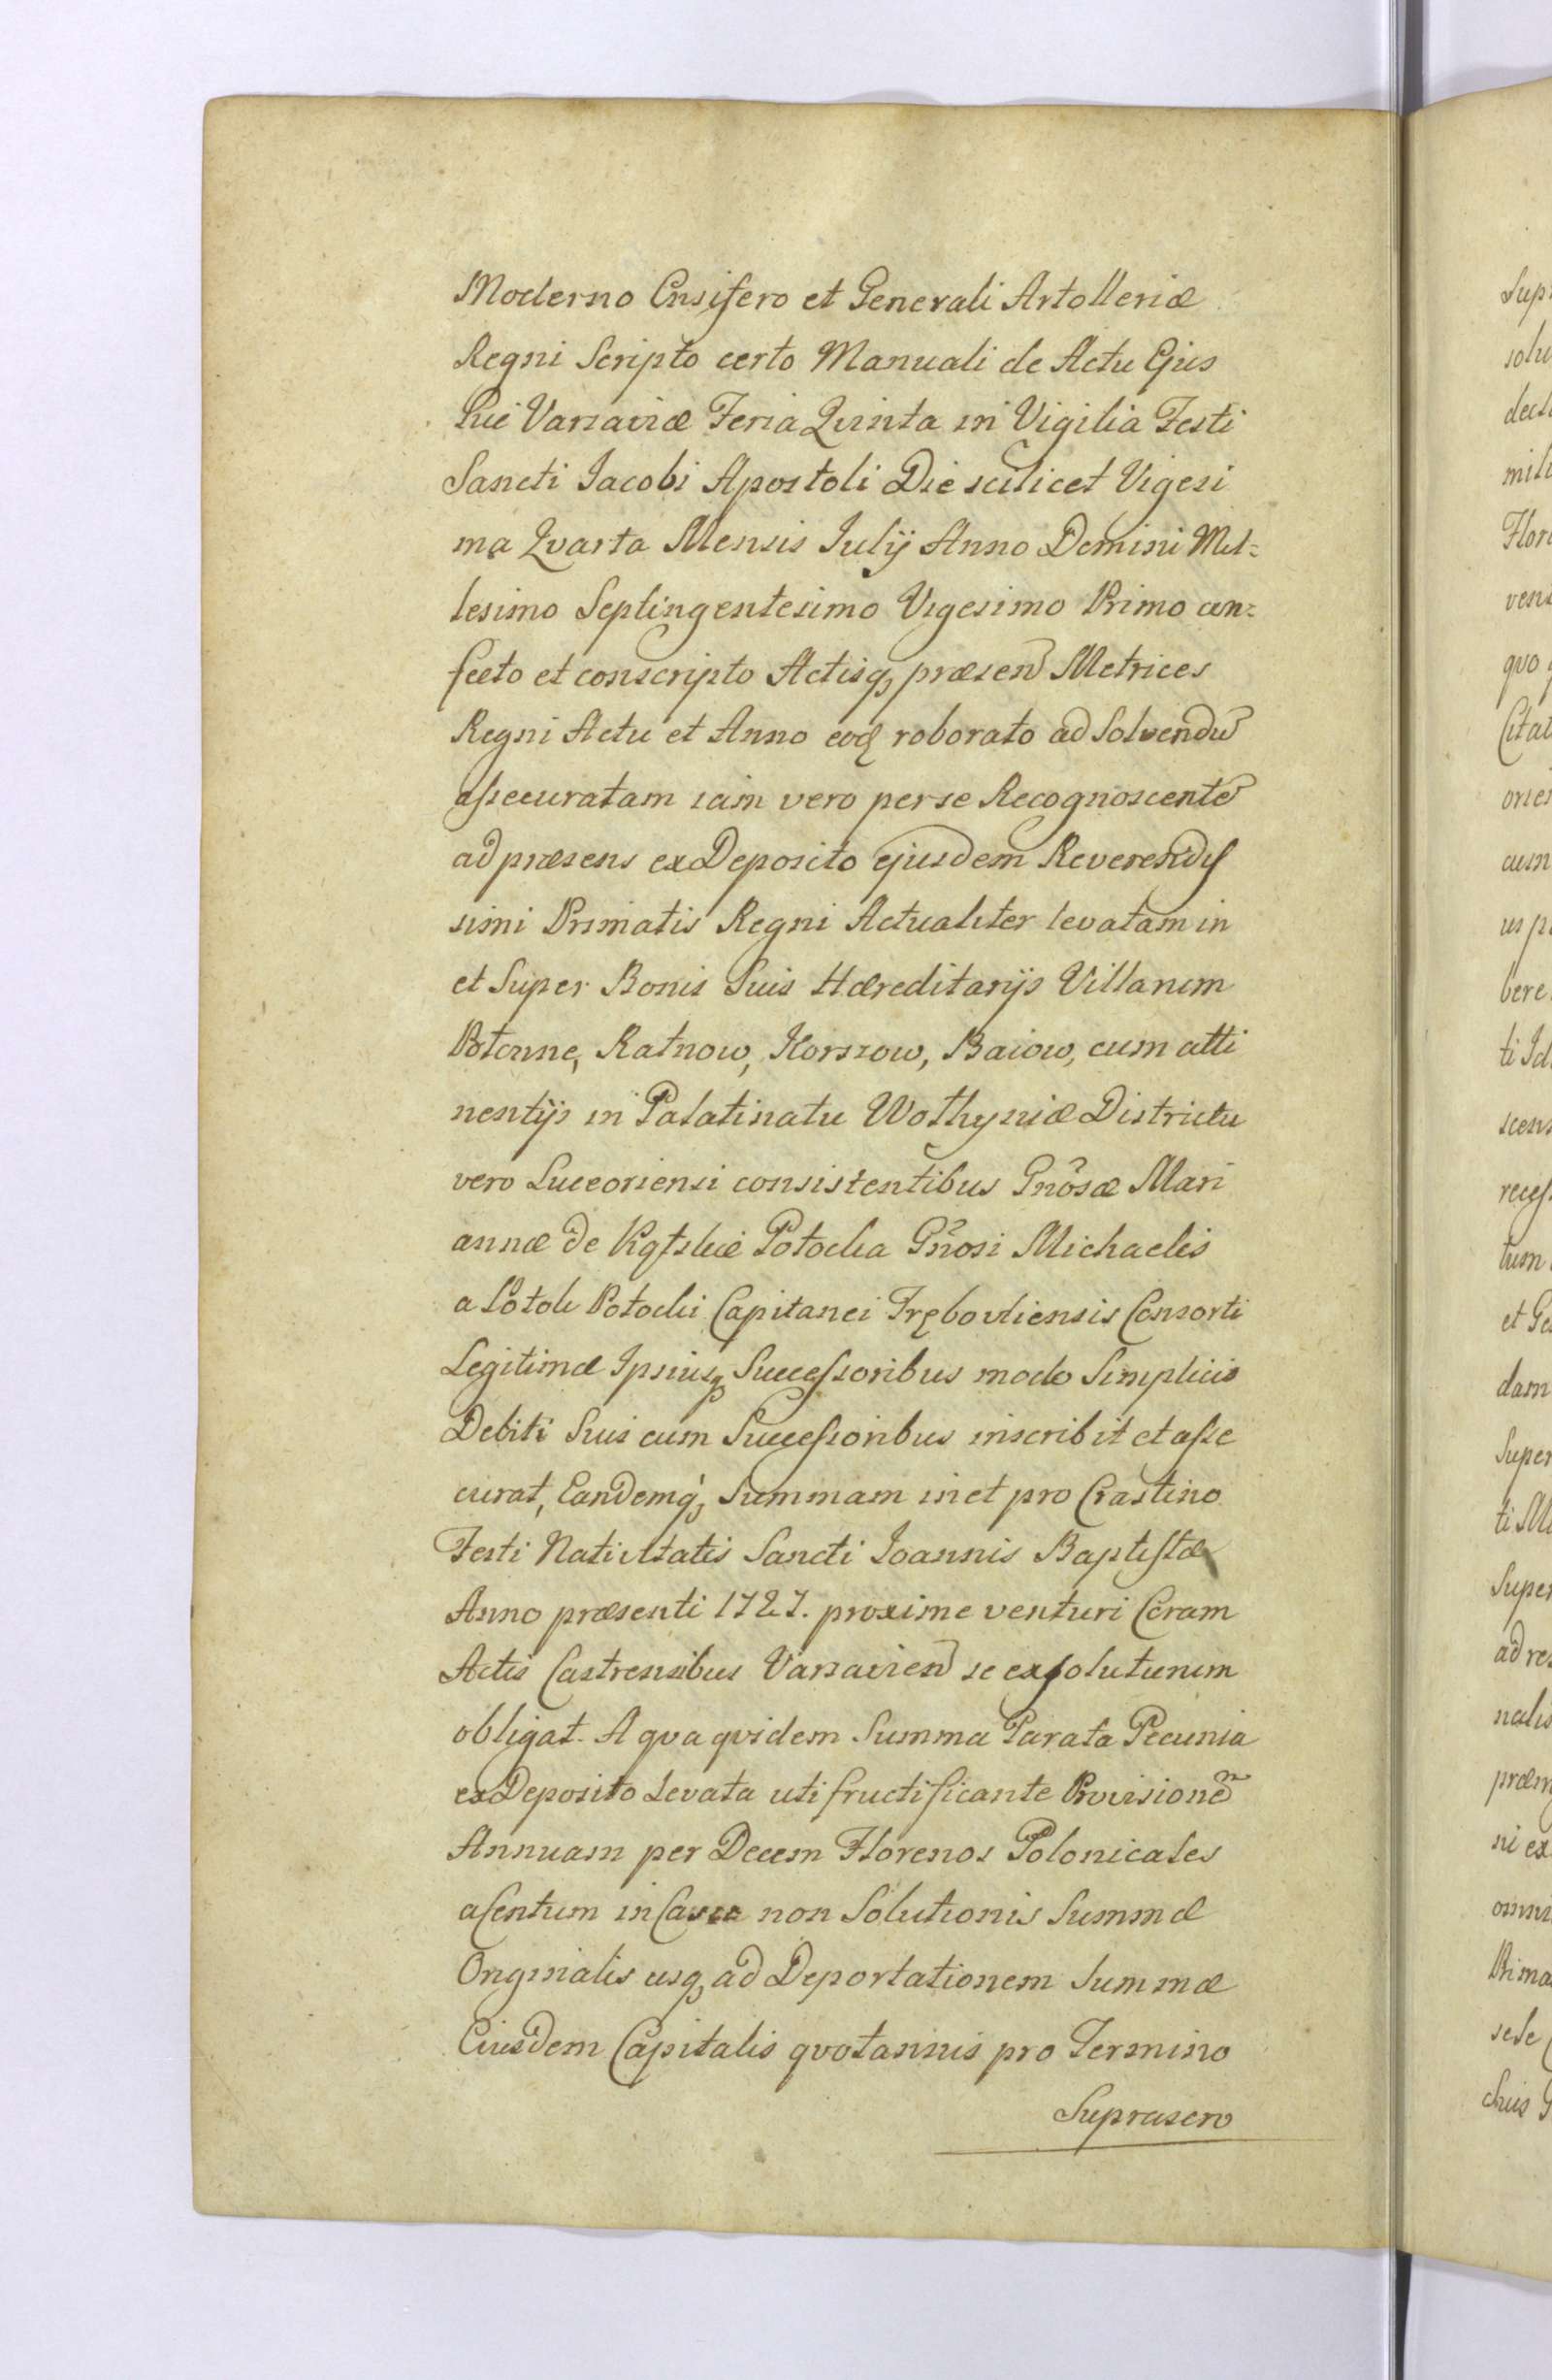 Moderno Ensifero et Generali Artolleriæ
Regni Scripto certo Manuali de Actu Ejus
Sui Varsaviæ Feria Qvinta in Vigilia Festi
Sancti Iacobi Apostoli Die scilicet Vigesi
ma Qvarta Mensis Iulij Anno Domini Mil-
lesimo Septingentesimo Vigesimo Primo con-
fecto et conscripto Actisq, præsen Metrices
Regni Actu et Anno eoq roborato ad Solvendu
assecuratam iam vero per se Recognoscente
ad præsens ex Deposito ejusdem Reverendis
simi Primatis Regni Actualiter levatam in
et Super Bonis Suis Hæreditarijs Villarum
Ratnow, Korszow, Baiow, cum atti
nentijs in Palatinatu Wolhyniæ Districtu
vero Luceoriensi consistentibus Gnosæ Mari
annæ de Potocka Gnosi Michaelis
a Potok Potocki Capitanei Trębovliensis Consorti
Legitimæ Ipsiusq Successoribus modo Simplicis
Debiti Suis cum Successoribus inscribit et asse
curat, Eandemq, Summam in et pro Crastino
Festi Nativitatis Sancti Ioannis Baptistæ
Anno præsenti 1727. proxime venturi Coram
Actis Castrensibus Varsavien se exsoluturum
obligat. A qva qvidem Summa Parata Pecunia
ex Deposito Levata uti fructificante Provisionem
Annuam per Decem Florenos Polonicales
a Centum in Casu non Solutionis Summæ
Originalis usq, ad Deportationem Summæ
Eiusdem Capitalis qvotannis pro Termino
Suprascro